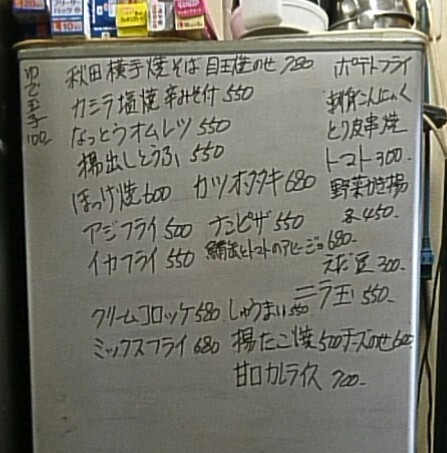 ゆで玉子100
秋田横手焼そば目玉焼のせ780
カシラ塩焼辛みそ付550
なっとうオムレツ550
揚出しとうふ550
ほっけ焼600 カツオタタキ680
アジフライ500 ナンピザ550
イカフライ550 鯖缶とトマトのアヒージョ680-
クリームコロッケ580 しゅうまい550
ミックスフライ680 揚たこ焼500チーズのせ600
甘口カレライス700-
ポテトフライ
刺身こんにゃく
とり皮串焼
トマト300-
野菜かき揚
各450-
えだ豆300-
ニラ玉550-